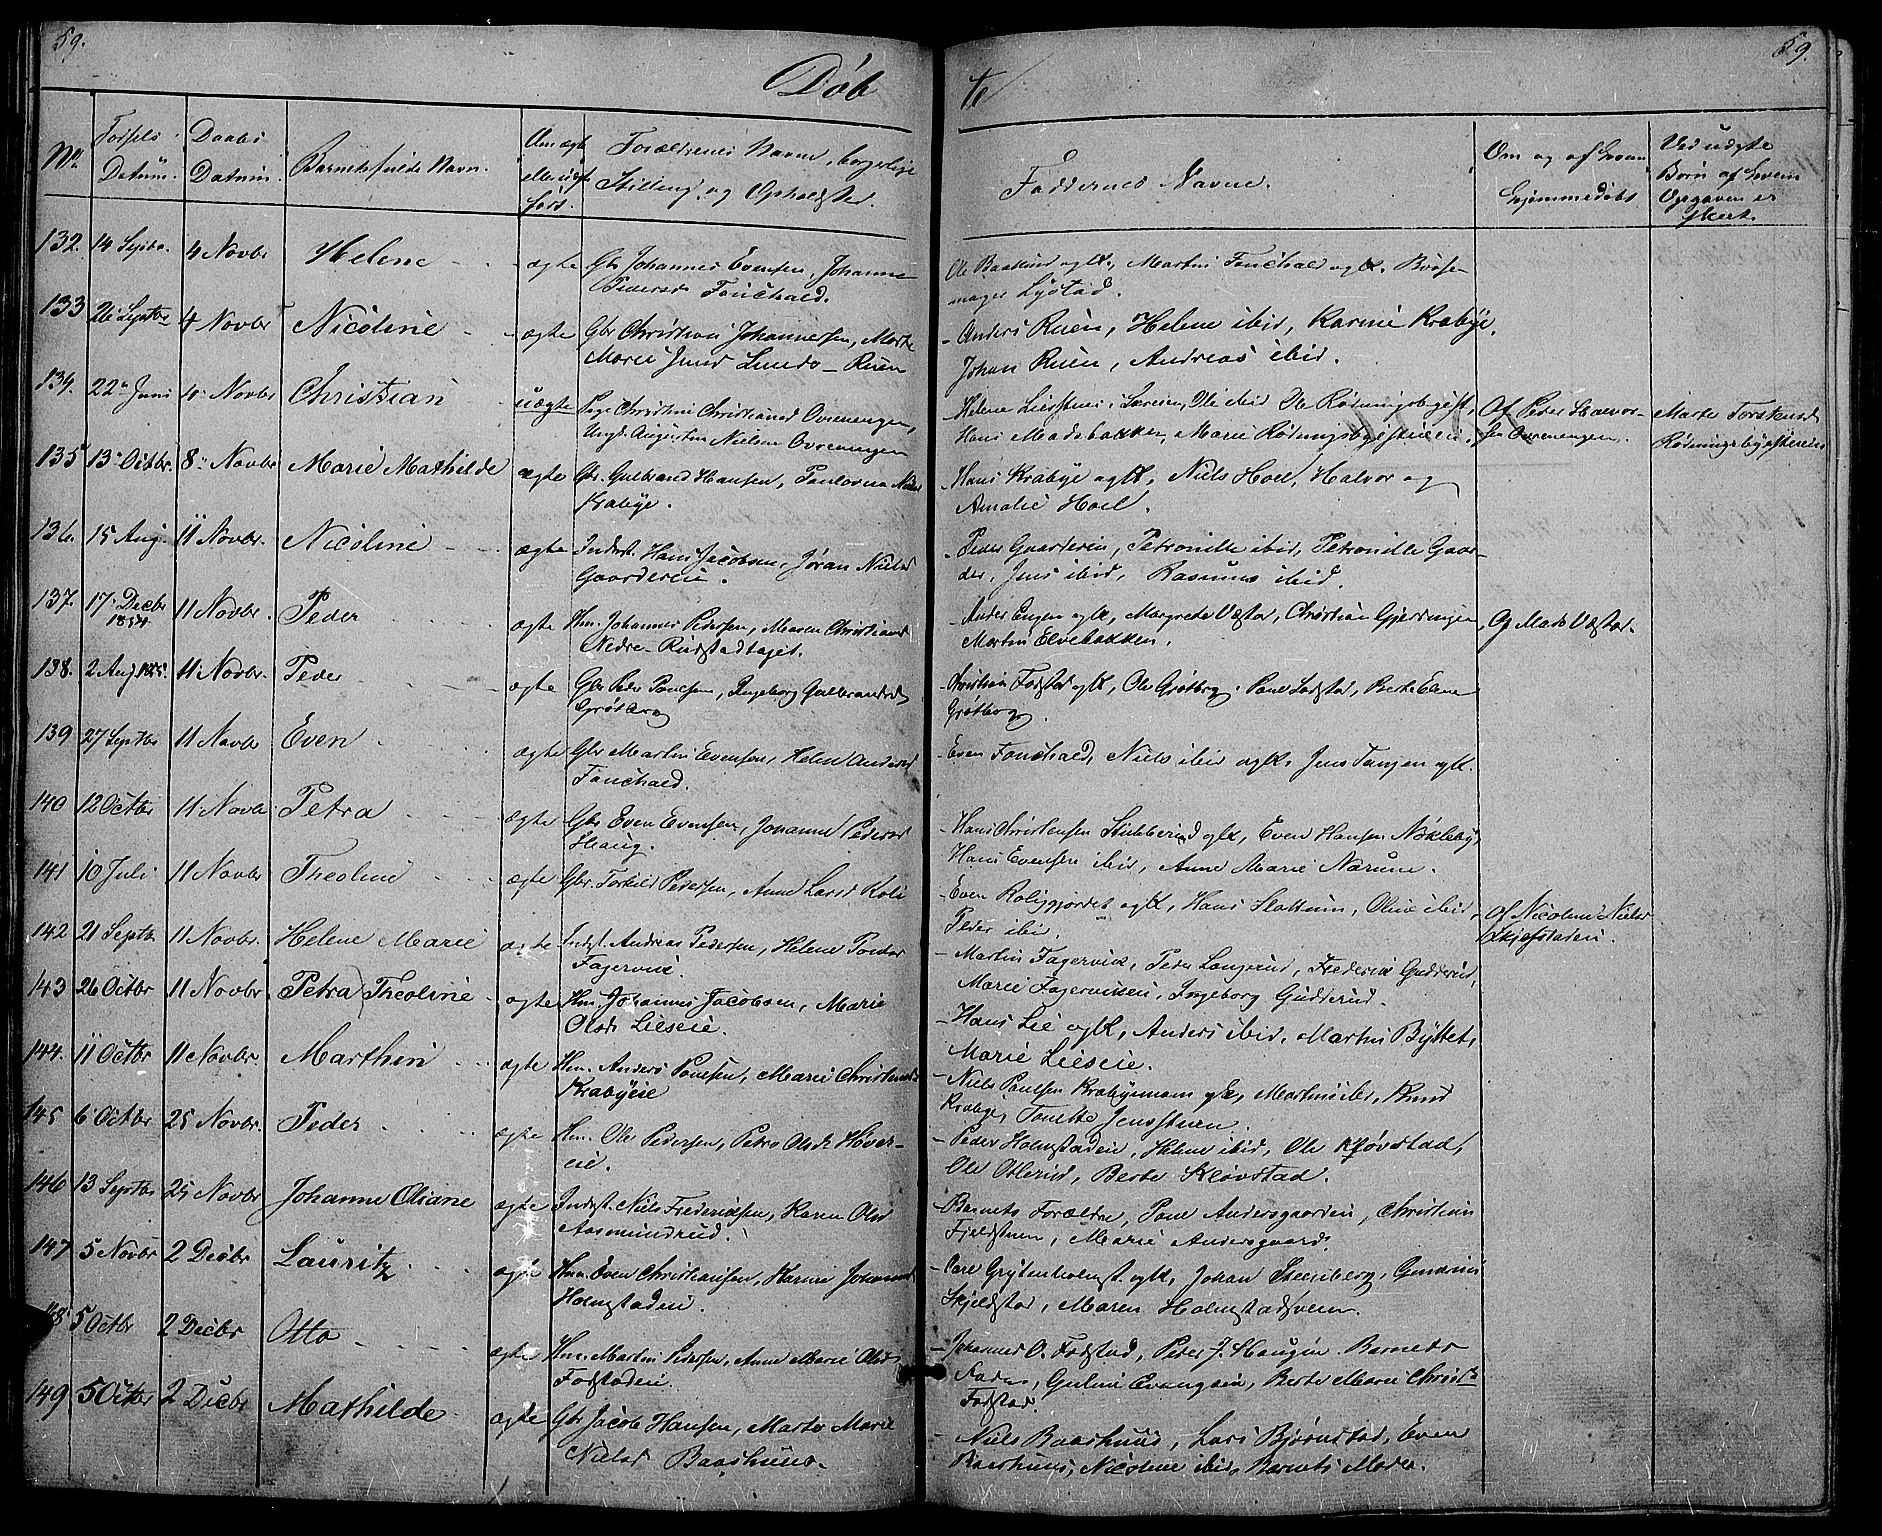 59.
59.
Døb
te
No.
Fødsels
Datum.
Daabs
Datum.
Barnets fulde Navn.
Om ægte
eller uægte
født.
Forældrenes Navne, borgerlige
Stilling, og Opholdsted.
Faddernes Navne.
Om og af hvem
hjemmedøbt
Ved uægte
Børn af hvem
Opgaven er
skeet.
132. 14 Septbr. 4 Novbr Helene - ægte Gbr Johannes Evensen, Johanne
Pedersd Fouchald.
Ole Baekked og K., Martin Fouchald og K. Bøsse-
mager Lystad.
133 26 Septbr 4 Novbr Nicoline - ægte Gbr Christian Johannessen, Marthe
Marie - Ruen
- Anders Ruen, Helene ibid, Karine Krabye,
Johan Ruen, Andreas ibid.
134. 22 Juni 4 Novbr Christian - uægte Pige Christine Christiansd Ovrenengen,
Ungk. Augustin Nielsen Ovrenengen
Helene, Ole ibid Ole Rødningsbyest,
Hans Madsbakken, Marie Rødningsbyesteien.
Af Peder Halvor-
sen Ovrenengen.
Marte Torstensd
Rødningsbyesteien
135 13 Octbr. 8 Novbr Marie Mathilde ægte Gbr. Gulbrand Hansen, Paulovna
Krabye.
- Hans Krabye og K, Niels Hoel, Halvor og
Amalie Hoel.
136. 15 Aug. 11 Novbr. Nicoline - ægte Inderst. Hans Jacobsen, Jøran Nielsd
Gaardereie.
- Peder Gaardereie, Petronille ibid, Petronille Gaar-
der, Jens ibid, Rasmus ibid.
137. 17 Decbr
1854 11 Novbr. Peder ægte Hm. Johannes Pedersen, Maren Christiansd
Nedre-Rudstadhaget.
- Anders Engen og K, Margrete Væstad, Christian Gjerdingen,
Martin Elvebakken.
Og Mads Væstad.
138. 2 Aug 1855. 11 Novbr. Peder - ægte Gbr Peder Poulsen, Ingeborg Gulbrandsd
Grøtberg
- Christian Fodstad og K, Ole Grøtberg, Poul Fodstad, Berte Elene
Grøtberg.
139 27 Septbr 11 Novbr Even - ægte Gbr Martin Evensen, Helene Andersd
Fouchald.
Even Fouchald, Niels ibid og K. Jens Tangen og K.
140 12 Octbr 11 Novbr Petra - ægte Gbr Even Evensen, Johanne Pedersd
Haug.
- Hans Christensen Stubberud og K, Even Hansen Nøkleby,
Hans Evensen ibid, Anne Marie Narum.
141 10 Juli 11 Novbr Theoline - ægte Gbr. Torkild Pedersen, Anne Larsd Roli
- Even Roliggjordet og K, Hans Slattum, Oline ibid,
Peder ibi.
Af Nicoline Nielsd
Skjefstadeie.
142 21 Septbr 11 Novbr. Helene Marie ægte Indst. Andreas Pedersen, Helene Poulsd
Fagervik.
- Martin Fagervik, Peder Langerud, Frederik Gudderud,
Marie Fagervikeie, Ingeborg Gudderud.
143 26 Octbr 11 Novbr. Petra Theoline - ægte Hm. Johannes Jacobsen, Marie
Olsdr Lieseie.
- Hans Lie og K, Anders ibid, Martin Byttet,
Marie Lieseie.
144. 11 Octbr 11 Novbr. Marthin - ægte Hm. Anders Poulsen, Marie Christensd
Krabyeie
- Niels Poulsen Krabyemoen og K, Martin ibi, Knud
Krabye, Tonette Jensstuen.
145 6 Octbr 25 Novbr. Peder - ægte Hm. Ole Pedersen, Petra Olsdr Hover-
eie.
- Peder Holmstadeie, Helene ibid, Ole Kløvstad,
Ole Olterud, Berte Kløvstad.
146 13 Septbr 25 Novbr Johanne Oliane ægte Indst. Niels Frederiksen, Karen Olsd
Aasmundrud.
- Barnets Forældre, Poul Andersgaardeie, Christian
Fjeldstuen, Marie Andersgaard.
147 5 Novbr 2 Decbr Lauritz - ægte Hm. Even Christiansen, Karine Johannesd
Holmstadeie.
- Carl Grytenholmst. og K, Johan Steensberg, Gunerius
Skjelstad, Maren Holmstadsveen.
148. 5 Octbr 2 Decbr Otto - ægte Hm. Martin Pedersen, Anne Marie Olsd
Fodstadeie.
- Johannes O. Fodstad, Peder J. Haugen. Barnets
Fader, Guline, Berte Marie Christ
Fodstad.
149 5 Octbr 2 Decbr Mathilde - ægte Gbr Jacob Hansen, Marte Marie
Nielsd Baashuus.
- Niels Baashuus, Lars Bjørnstad, Even
Baashuus, Nicoline ibid, Barnets Moder.